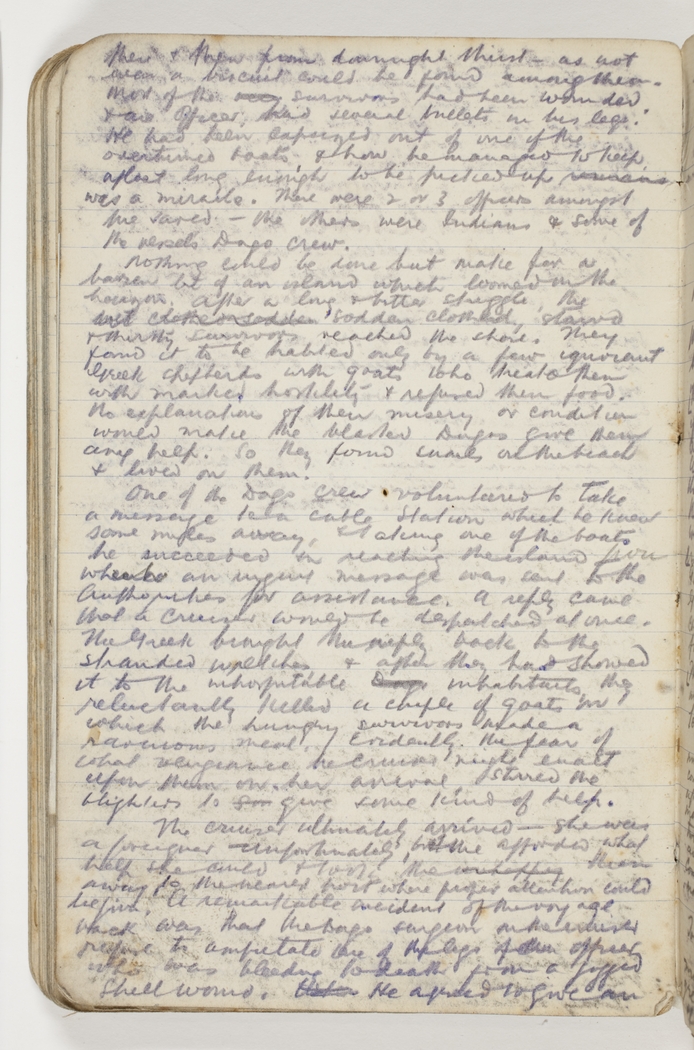 then & then from downright thirst – as not
even a biscuit could be found among them.
Most of the survivors had been wounded
& one officer had several bullets in his legs.
He had been capsized out of one of the
overturned boats, & how he managed to keep
afloat long enough to be picked up remains
was a miracle. There were 2 or 3 officers amongst
the saved – the others were Indians & some of
the vessels Dago crew.
Nothing could be done but make for a
barren bit of an island which loomed on the
horizon. After a long & bitter struggle, the
wet clothed sodden sodden clothed, starved
& thirsty survivors reached the shore. They
found it to be habited only by a few ignorant
Greek shepherds with goats who treated them
with marked hostility & refused them food.
No explanation of their misery or condition
would make the blasted Dagos give them
any help. So they found snails on the beach
& lived on them.
One of the Dago crew volunteered to take
a message to a cable station which he knew
some miles away, & taking one of the boats
he succeeded in reaching the island from
whence an urgent message was sent to the
Authorities for assistance. A reply came
that a cruiser would be despatched at once.
The Greek brought the reply back to the
stranded wretches & after they had showed
it to the inhospitable Dago inhabitants, they
reluctantly killed a couple of goats on
which the hungry survivors made a
ravenous meal. Evidently the fear of
what vengeance the cruiser might exact
upon them on her arrival stirred the
blighters to give some kind of help.
The cruiser ultimately arrived – she was
a foreigner unfortunately, but she afforded what
help she could & took the them
away to the nearest port where proper attention could
be given. A remarkable incident of the voyage
back was that the Dago surgeon on the cruiser
refused to amputate one of the legs of the officer
who was bleeding to death from a jagged
shell wound. He agreed to give an